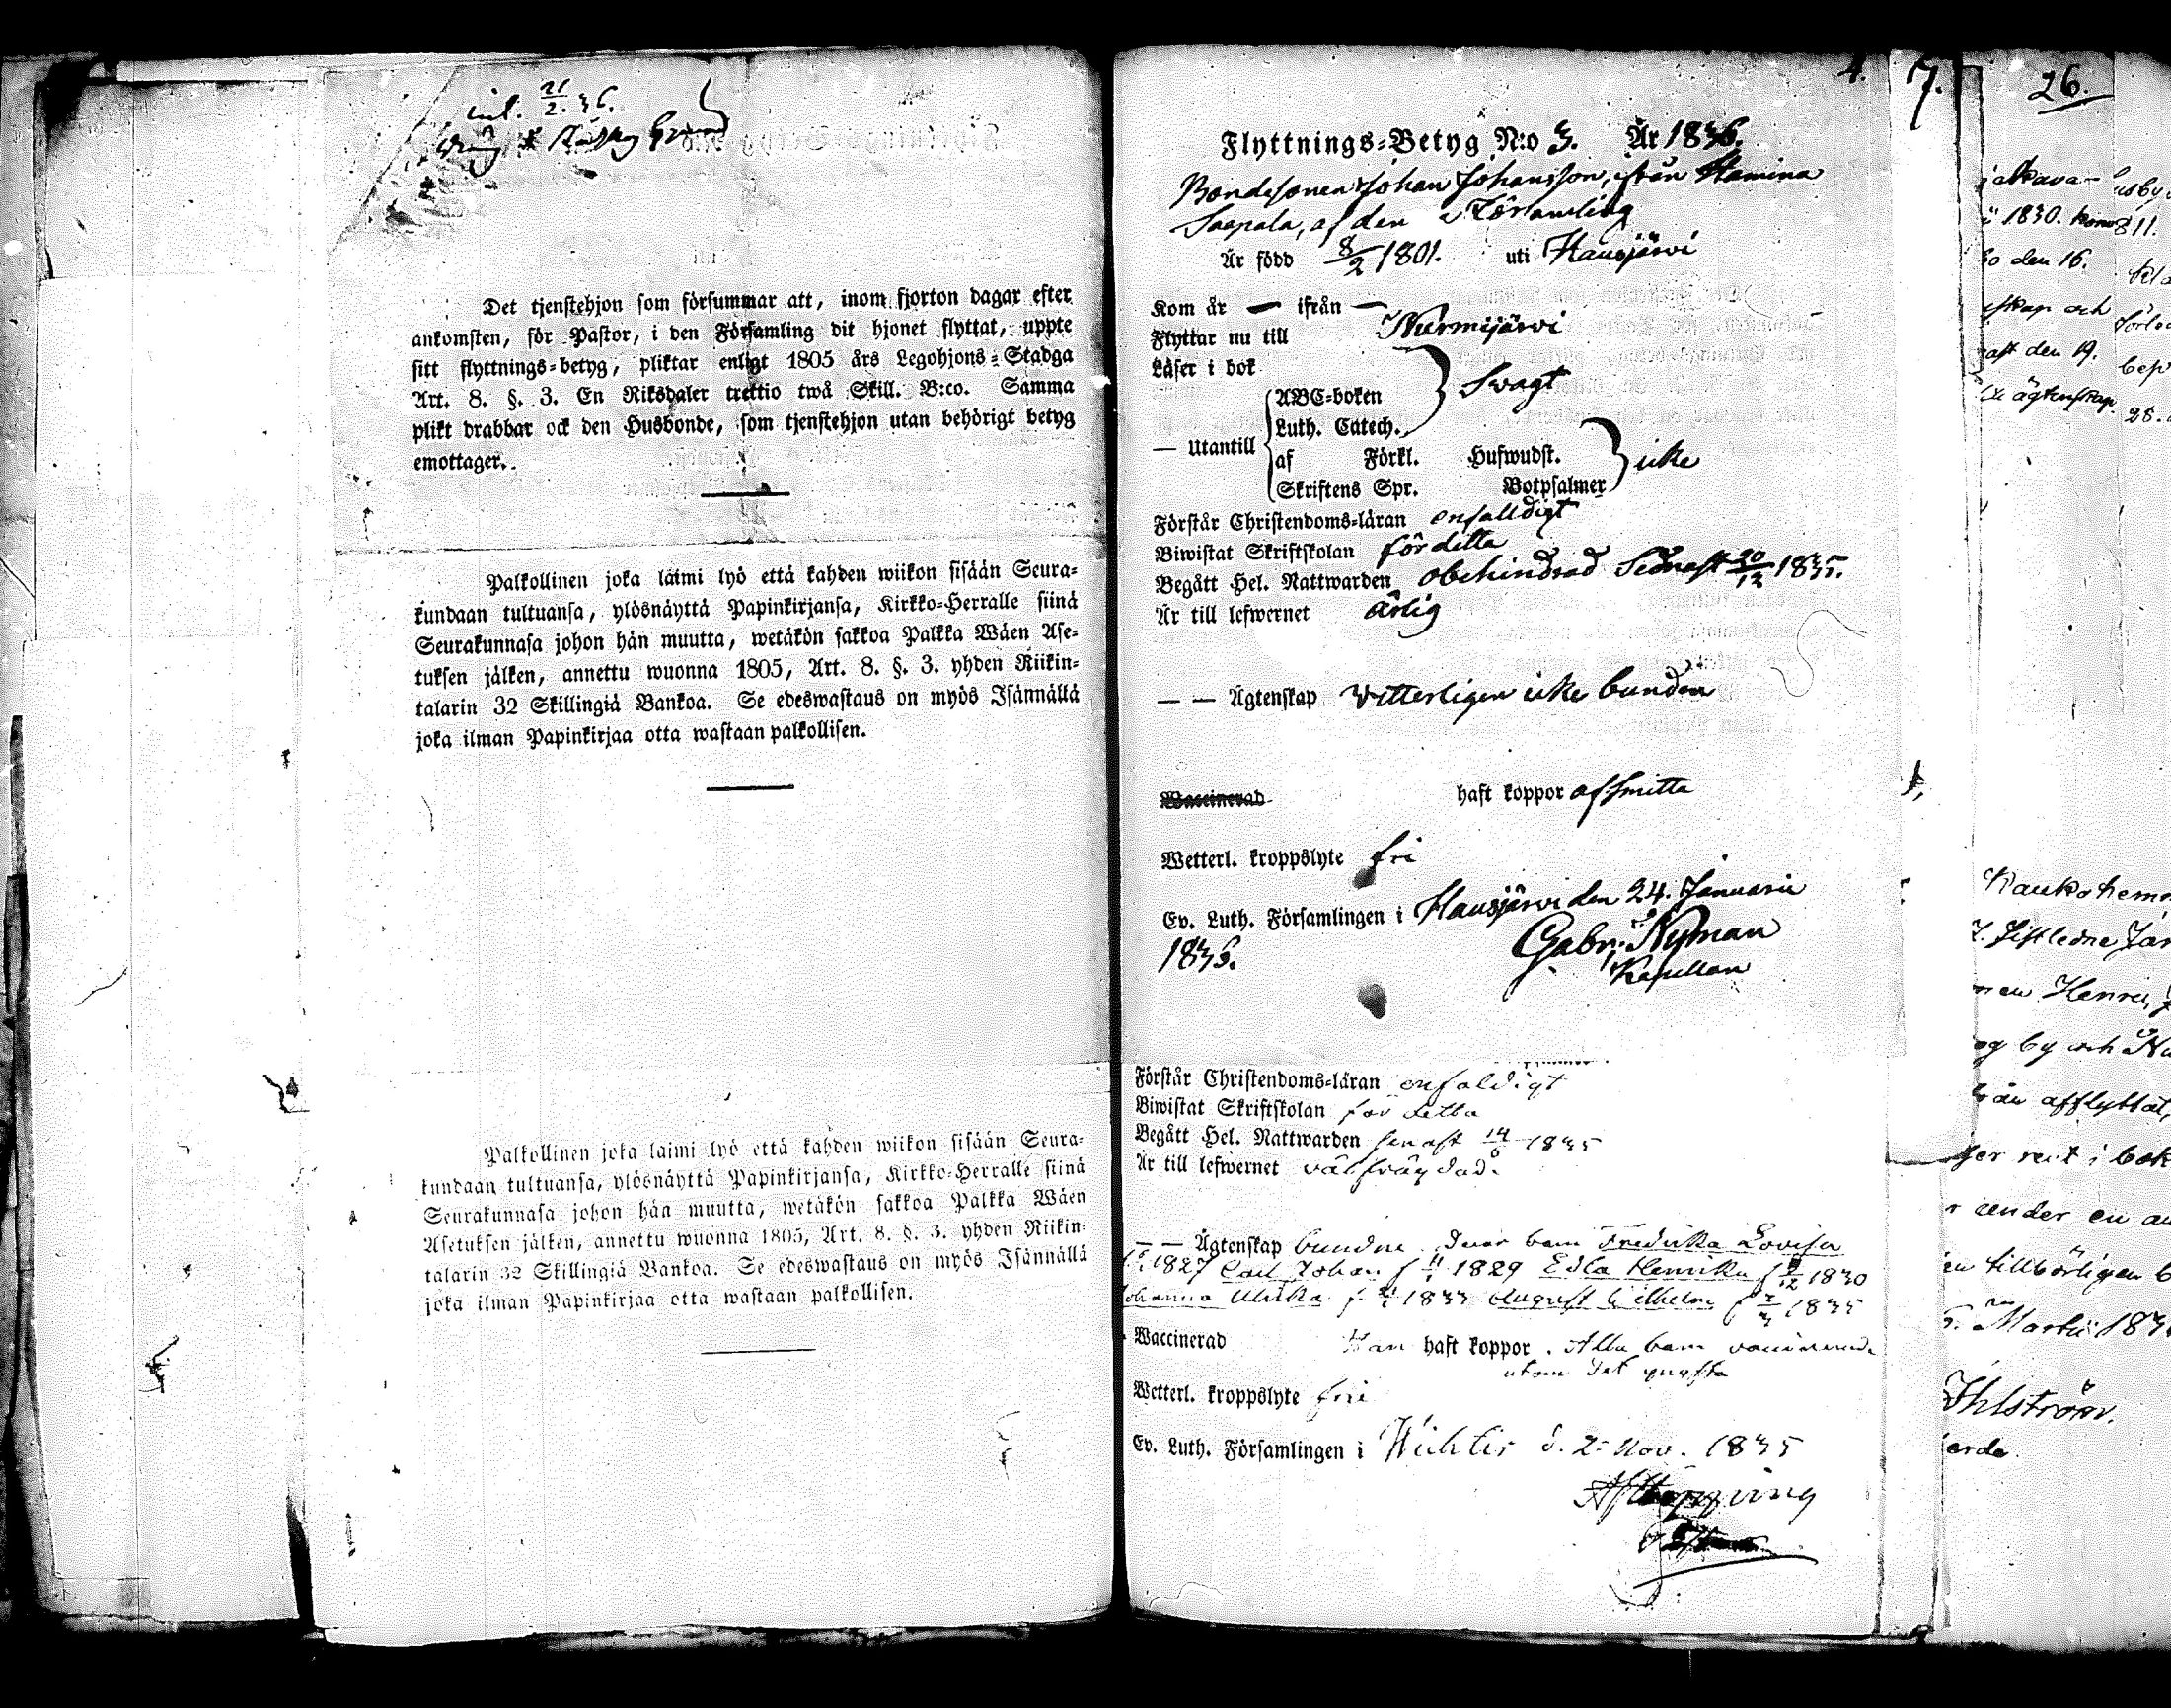 inl. 21/2. 36.
Det tjenstehjon som försummar att, inom fjorton dagar efter
ankomsten, för Pastor, i den Församling dit hjonet flyttat, uppte
sitt flyttnings-betyg, pliktar enligt 1805 års Legohjons-Stadga
Art. 8. §. 3. En Riksdaler trettio twå Skill. B:co. Samma
plikt drabbar ock den Husbonde, som tjenstehjon utan behörigt betyg
emottager.
Palkollinen joka laimi lyö että kahden wiikon sisään Seura-
kundaan tultuansa, ylösnäyttä Papinkirjansa, Kirkko-Herralle siinä
Seurakunnasa johon hän muutta, wetäkön sakkoa Palkka Wäen Ase-
tuksen jälken, annettu wuonna 1805, Art. 8. §. 3. yhden Riikin-
talarin 32 Skillingiä Bankoa. Se edeswastaus on myös Isännällä
joka ilman Papinkirjaa otta wastaan palkollisen.
Palkollinen joka laimi lyö että kahden wiikon sisään Seura-
kundaan tultuansa, ylösnäyttä Papinkirjansa, Kirkko-Herralle siinä
Seurakunnasa johon hän muutta, wetäkön sakkoa Palkka Wäen
Asetuksen jälken, annettu wuonna 1805, Art. 8. §. 3. yhden Riikin-
talarin 32 Skillingiä Bankoa. Se edeswastaus on myös Isännällä
joka ilman Papinkirjaa otta wastaan palkollisen.
4.
Flyttnings-Betyg N:o 3. År 1836.
Bondesonen Johan Johansson, ifrån Hamina
Saapala, af den Församling
Är född 8/2 1801. uti Hausjärvi
Kom år — ifrån —
Flyttar nu till Nurmijärvi
Läser i bok
ABC-boken } Svagt
Luth. Catech.
— Utantill
af Förkl. Hufwudst. } icke
Skriftens Spr. Botpsalmer
Förstår Christendoms-läran enfalldigt
Biwistat Skriftskolan för detta
Begått Hel. Nattwarden obehindrad Sednast 20/12 1835.
Är till lefwernet ärlig
— — Ägtenskap Vitterligen icke bunden
Waccinerad haft koppor af smitta
Wetterl. kroppslyte fri
Ev. Luth. Församlingen i Hausjärvi den 24. Januarii
1836. Gabr: Nyman
Kapellan
Förstår Christendoms-läran enfaldigt
Biwistat Skriftskolan för detta
Begått Hel. Nattwarden senast 14/ 1835
Är till lefwernet välfrägdade
— — Ägtenskap bundne. Deras barn Fredrika Lovisa
1827 Carl Johan f 1829 Edla Henrika f /12 1830
Johanna Ulrika f. 1833 August Wilhelm f 1835
Waccinerad Han haft koppor. Alla barn vaccinerade
utom det yngsta
Wetterl. kroppslyte frie
Ev. Luth. Församlingen i Wichtis d. 2 Nov. 1835
7.
26.
1830.
11.
den 16.
och
den 19.
ägtenskap
28.
Henric
by och
afflyttat,
i bok
under en
tillbörligen
Martii 183